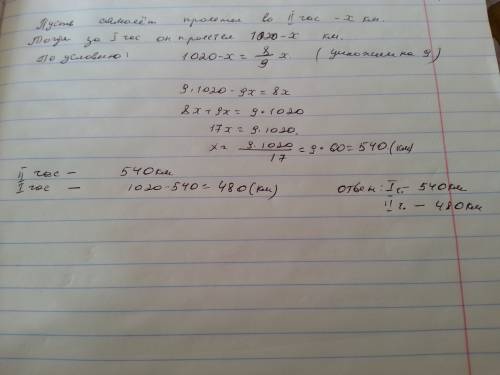 Пусть самолёт пролетел во II час - x км.
Тогда за I час он пролетел 1020-x км.
По условию: 1020-x = 8/9 x. (умножим на 9)
9·1020 - 9x = 8x
8x + 9x = 9·1020
17x = 9·1020.
x = 9·1020/17 = 9·60 = 540 (км)
II час — 540 км
I час — 1020-540 = 480 (км) ответ: I ч. - 540 км
II ч. — 480 км